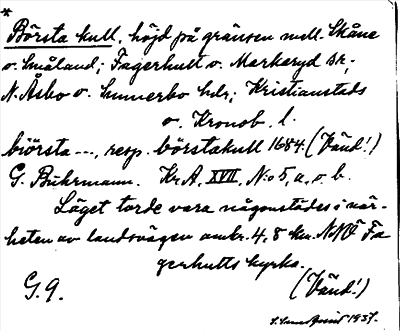 *
Börsta kull, höjd på gränsen mell. Skåne
o. Småland; Fagerhult o. Markaryd sr,
N. Åsbo o. Sunnerbo hdr; Kristianstads
o. Kronob. l.
biörsta ---, resp. börstakull 1684. (Vänd!)
G. Buhrmann. Kr. A. XVII, N:o 5, a, o. b.
Läget torde vara någonstädes i när-
heten av landsvägen omkr. 4,8 km NNÖ Fa
gerhults kyrka.
(Vänd!)
G. 9.
1937.